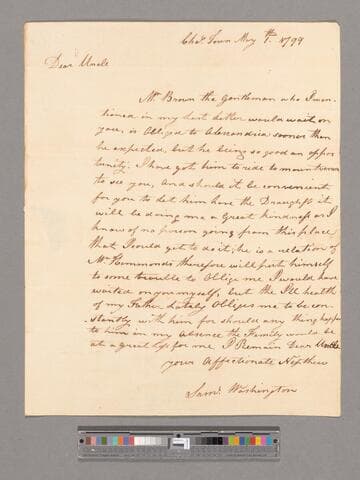 Chas. Town May 7th. 1799
Dear Uncle
Mr. Brown the Gentleman who I men-
tioned in my last letter would wait on
you, is Obliged to Alexandria sooner than
he expected, but he being so good an oppor
tunity. I have got him to ride to mount vernon
to see you, and should it be convenient
for you to let him have the Draughts it
will be doing me a Great kindness as I
know of no person going from this place
that I could get to do it, he is a relation of
Mr. Hammonds therefore will put himself
to some trouble to Oblige me I would have
waited on you myself, but the Ill health
of my Father lately Obliges me to be con-
stantly with him for should any thing happen
to him in my absence the Family would be
at a great loss for me, I Remain Dear Uncle
your Affectionate Nephew
Saml. Washington